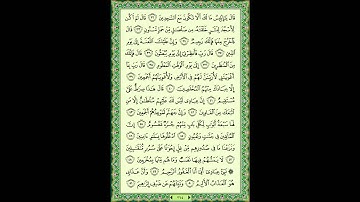 قَالَ يَٰٓإِبْلِيسُ مَا لَكَ أَلَّا تَكُونَ مَعَ ٱلسَّٰجِدِينَ ٣٢ قَالَ لَمْ أَكُن
لِّأَسْجُدَ لِبَشَرٍ خَلَقْتَهُۥ مِن صَلْصَٰلٍ مِّنْ حَمَإٍ مَّسْنُونٍ ٣٣ قَالَ
فَٱخْرُجْ مِنْهَا فَإِنَّكَ رَجِيمٌ ٣٤ وَإِنَّ عَلَيْكَ ٱللَّعْنَةَ إِلَىٰ يَوْمِ
ٱلدِّينِ ٣٥ قَالَ رَبِّ فَأَنظِرْنِىٓ إِلَىٰ يَوْمِ يُبْعَثُونَ ٣٦ قَالَ فَإِنَّكَ
مِنَ ٱلْمُنظَرِينَ ٣٧ إِلَىٰ يَوْمِ ٱلْوَقْتِ ٱلْمَعْلُومِ ٣٨ قَالَ رَبِّ بِمَآ
أَغْوَيْتَنِى لَأُزَيِّنَنَّ لَهُمْ فِى ٱلْأَرْضِ وَلَأُغْوِيَنَّهُمْ أَجْمَعِينَ ٣٩
إِلَّا عِبَادَكَ مِنْهُمُ ٱلْمُخْلَصِينَ ٤٠ قَالَ هَٰذَا صِرَٰطٌ عَلَىَّ
مُسْتَقِيمٌ ٤١ إِنَّ عِبَادِى لَيْسَ لَكَ عَلَيْهِمْ سُلْطَٰنٌ إِلَّا مَنِ
ٱتَّبَعَكَ مِنَ ٱلْغَاوِينَ ٤٢ وَإِنَّ جَهَنَّمَ لَمَوْعِدُهُمْ أَجْمَعِينَ ٤٣
لَهَا سَبْعَةُ أَبْوَٰبٍ لِّكُلِّ بَابٍ مِّنْهُمْ جُزْءٌ مَّقْسُومٌ ٤٤ إِنَّ
ٱلْمُتَّقِينَ فِى جَنَّٰتٍ وَعُيُونٍ ٤٥ ٱدْخُلُوهَا بِسَلَٰمٍ ءَامِنِينَ ٤٦
وَنَزَعْنَا مَا فِى صُدُورِهِم مِّنْ غِلٍّ إِخْوَٰنًا عَلَىٰ سُرُرٍ مُّتَقَٰبِلِينَ ٤٧
لَا يَمَسُّهُمْ فِيهَا نَصَبٌ وَمَا هُم مِّنْهَا بِمُخْرَجِينَ ٤٨
۞ نَبِّئْ عِبَادِىٓ أَنِّىٓ أَنَا ٱلْغَفُورُ ٱلرَّحِيمُ ٤٩ وَأَنَّ عَذَابِى
هُوَ ٱلْعَذَابُ ٱلْأَلِيمُ ٥٠ وَنَبِّئْهُمْ عَن ضَيْفِ إِبْرَٰهِيمَ ٥١